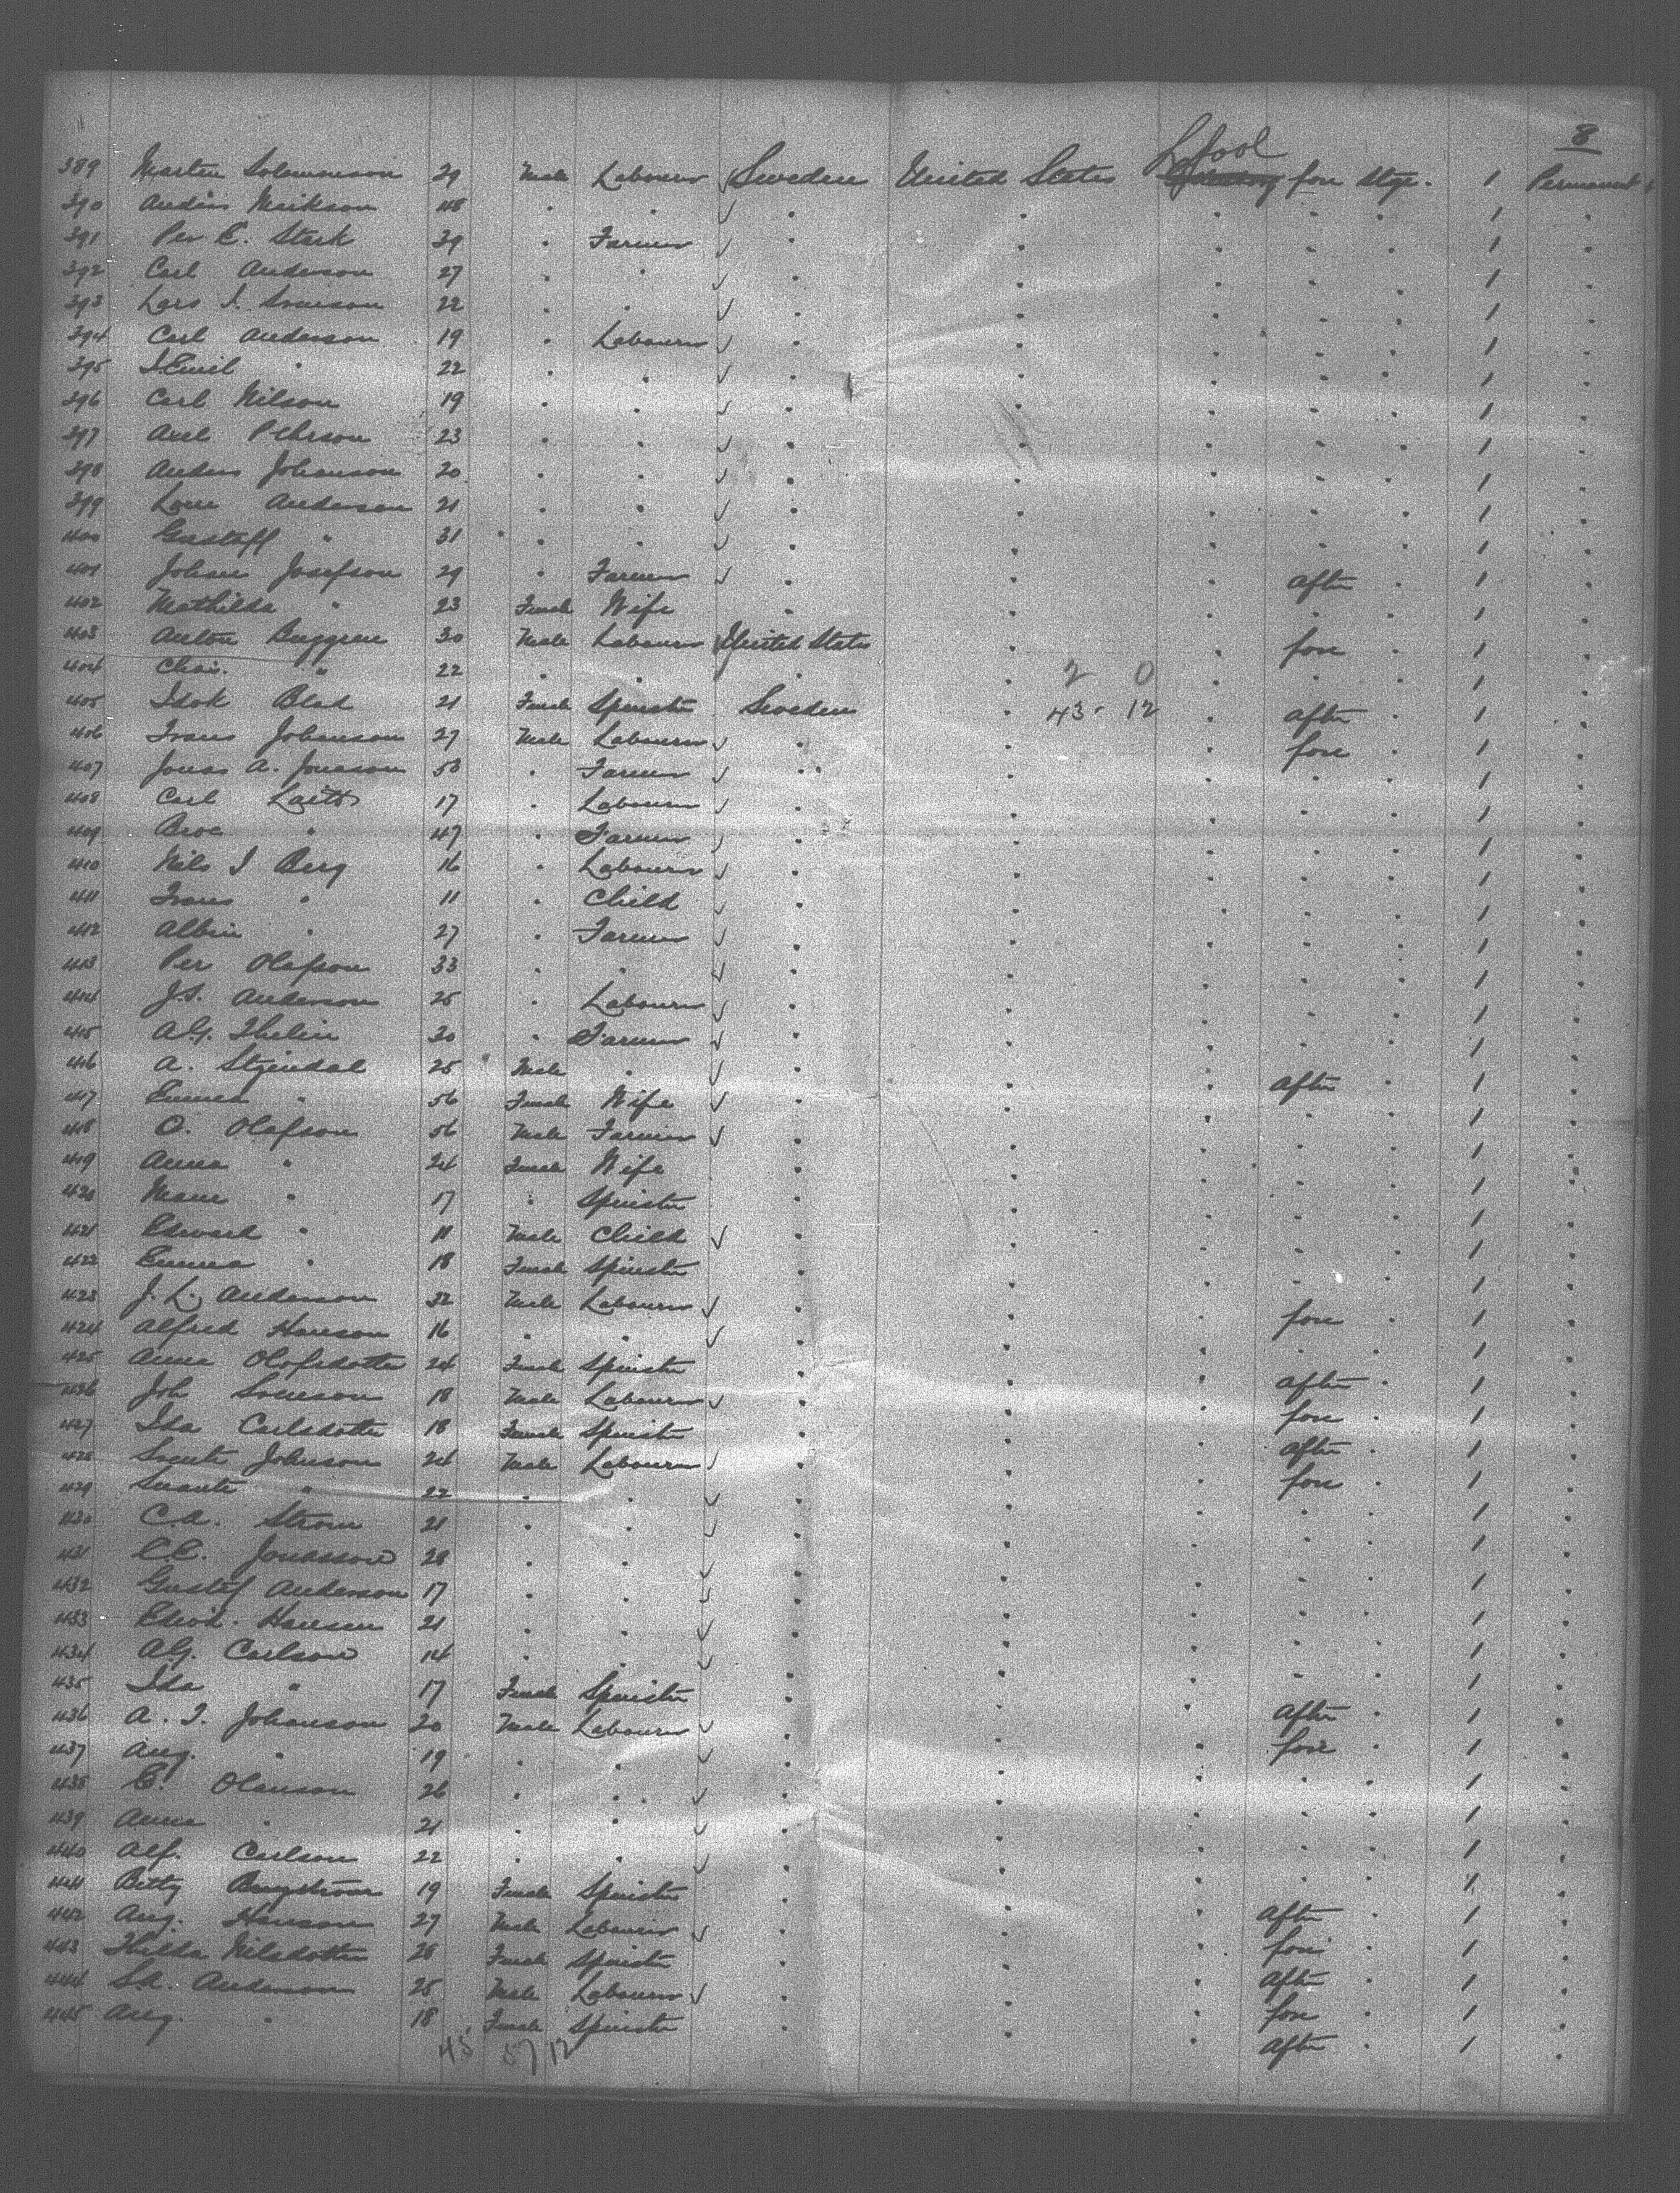 8
L'pool
389 Marten Solomonson 29 Male Labourer Sweden United States fore Stge. 1 Permanent
390 Anders Erikson 48 " " " " " " " 1 "
391 Per E. Stark 39 " Farmer " " " " " 1 "
392 Carl Anderson 27 " " " " " " " 1 "
393 Lars J. Swenson 22 " " " " " " " 1 "
394 Carl Anderson 19 " Labourer " " " " " 1 "
395 J. Emil " 22 " " " " " " " 1 "
396 Carl Nilson 19 " " " " " " " 1 "
397 Axel Pehrson 23 " " " " " " " 1 "
398 Anders Johanson 20 " " " " " " " 1 "
399 Anderson 21 " " " " " " " 1 "
400 Gustaff " 31 " " " " " " " 1 "
401 Johan Josefson 29 " Farmer " " " after " 1 "
402 Mathilda " 23 Female Wife " " " " " 1 "
403 Anton Berggren 30 Male Labourer United States " " fore " 1 "
404 Chas. " 22 " " " " 2 0 " " " 1 "
405 Blad 21 Female Spinster Sweden " 43 - 12 " after " 1 "
406 Frans Johanson 27 Male Labourer " " " fore " 1 "
407 Jonas A. Jonason 53 " Farmer " " " " " 1 "
408 Carl 17 " Labourer " " " " " 1 "
409 " 47 " Farmer " " " " " 1 "
410 Nils J Berg 16 " Labourer " " " " " 1 "
411 Frans " 11 " Child " " " " " 1 "
412 Albin " 27 " Farmer " " " " " 1 "
413 Per Olafson 33 " " " " " " " 1 "
414 J.S. Anderson 25 " Labourer " " " " " 1 "
415 A.G. Thelin 30 " Farmer " " " " " 1 "
416 A. 25 Male " " " " after " 1 "
417 Emma " 56 Female Wife " " " " " 1 "
418 O. Olafson 56 Male Farmer " " " " " 1 "
419 Anna " 24 Female Wife " " " " " 1 "
420 " 17 " Spinster " " " " " 1 "
421 Edward " 11 Male Child " " " " " 1 "
422 Emma " 18 Female Spinster " " " " " 1 "
423 J. L. Anderson 32 Male Labourer " " " fore " 1 "
424 Alfred Hanson 16 " " " " " " " 1 "
425 Anna Olofsdotter 24 Female Spinster " " " after " 1 "
426 Joh Svenson 18 Male Labourer " " " fore " 1 "
427 Ida Carlsdotter 18 Female Spinster " " " after " 1 "
428 Svante Johnson 24 Male Labourer " " " fore " 1 "
429 Svante " 22 " " " " " " " 1 "
430 C.A. Strom 21 " " " " " " " 1 "
431 C.E. Jonasson 28 " " " " " " " 1 "
432 Gustaf Anderson 17 " " " " " " " 1 "
433 Hansen 21 " " " " " " " 1 "
434 A.G. Carlson 14 " " " " " " " 1 "
435 Ida " 17 Female Spinster " " " after " 1 "
436 A. J. Johanson 20 Male Labourer " " " fore " 1 "
437 Aug. " 19 " " " " " " " 1 "
438 E. Olauson 26 " " " " " " " 1 "
439 Anna " 21 " " " " " " " 1 "
440 Alf. Carlson 22 " " " " " " " 1 "
441 Betty Bergstrom 19 Female Spinster " " " after " 1 "
442 Aug. Hanson 27 Male Labourer " " " fore " 1 "
443 Thilda Nilsdotter 28 Female Spinster " " " after " 1 "
444 S.A. Anderson 25 Male Labourer " " " fore " 1 "
445 Aug. " 18 Female Spinster " " " after " 1 "
45 57 12